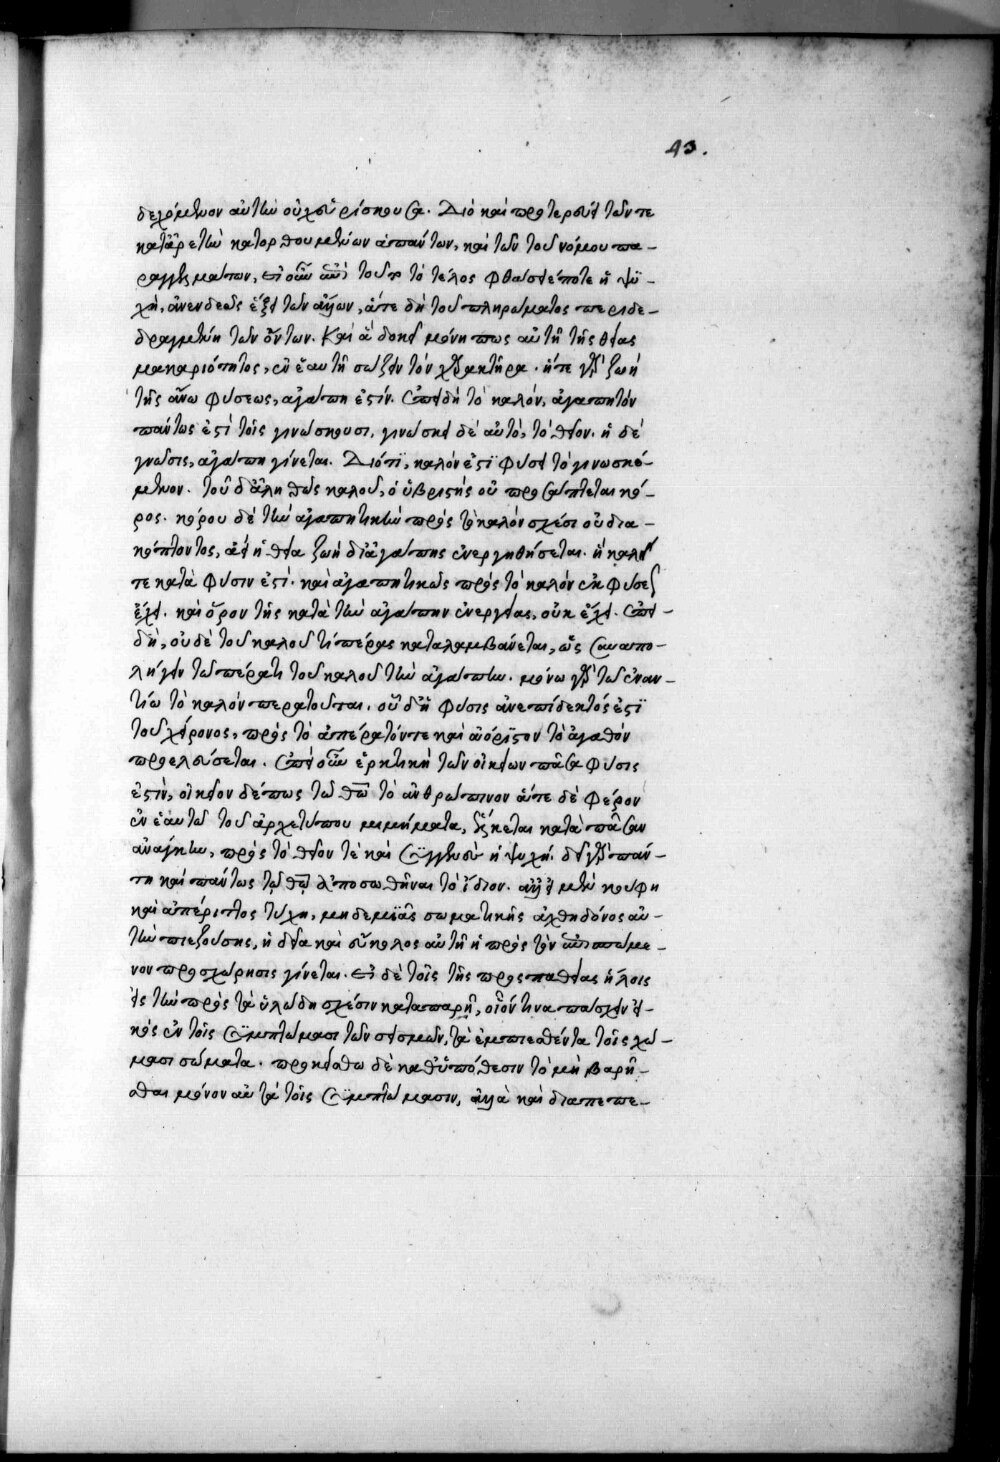 43.
δεχόμενον αὐτὴν οὐχ εὑρίσκουσα. Διὸ καὶ προτερεύει τῶν τε
κατ' ἀρετὴν κατορθουμένων ἁπάντων, καὶ τῶν τοῦ νόμου πα-
ραγγελμάτων, εἰ οὖν ἐπὶ τοῦτο τὸ τέλος φθάσειέ ποτε ἡ ψυ-
χὴ, ἀνενδεῶς ἕξει τῶν ἄλλων, ἅτε δὴ τοῦ πληρώματος περιδε-
δραγμένη τῶν ὄντων. Καὶ ἃ δοκεῖ μόνη πως αὐτὴ τῆς θείας
μακαριότητος, ἐν ἑαυτῇ σώζειν τὸν χαρακτῆρα. ἥτε γὰρ ζωὴ
τῆς ἄνω φύσεως, ἀγάπη ἐστίν. ἐπειδὴ τὸ καλὸν, ἀγαπητὸν
πάντως ἐστὶ τοῖς γινώσκουσι, γινώσκει δὲ αὐτὸ, τὸ θεῖον. ἡ δὲ
γνῶσις, ἀγάπη γίνεται. Διότι, καλόν ἐστι φύσει τὸ γινωσκό-
μενον. τοῦ δ' ἀληθῶς καλοῦ, ὁ ὑβριστὴς οὐ προσάπτεται κό-
ρος. κόρου δὲ τὴν ἀγαπητικὴν πρὸς τὸ καλὸν σχέσι οὐ δια-
κόπτοντος, ἀεὶ ἡ θεία ζωὴ δι' ἀγάπης ἐνεργηθήσεται. ἢ καλή
τε κατὰ φύσιν ἐστὶ. καὶ ἀγαπητικῶς πρὸς τὸ καλὸν ἐκ φύσεως
ἔχει. καὶ ὅρον τῆς κατὰ τὴν ἀγάπην ἐνεργείας, οὐκ ἔχει. ἐπει-
δὴ, οὐδὲ τοῦ καλοῦ τι πέρας καταλαμβάνεται, ὡς συναπο-
λήγειν τῷ πέρατι τοῦ καλοῦ τὴν ἀγάπην. μόνω γὰρ τῶ ἐναν-
τίω τὸ καλὸν περατοῦται. οὗ δ' ἡ φύσις ἀνεπίδεκτός ἐστι
τοῦ χείρονος, πρὸς τὸ ἀπέρατόν τε καὶ ἀόριστον τὸ ἀγαθὸν
προελεύσεται. ἐπεὶ οὖν ἑλκτικὴ τῶν οἰκείων πᾶσα φύσις
ἐστὶν, οἰκεῖον δέ πως τῶ θῶ τὸ ἀνθρώπινον ἅτε δὲ φέρον
ἐν ἑαυτῶ τοῦ ἀρχετύπου μιμήματα, ἕλκεται κατὰ πᾶσαν
ἀνάγκην, πρὸς τὸ θεῖον τὲ καὶ συγγενὲς ἡ ψυχή. δεῖ γὰρ πάν-
τη καὶ πάντως τῷ θῷ ἀποσωθῆναι τὸ ἴδιον. ἀλλ' εἰ μὲν κούφη
καὶ ἀπέριττος τύχη, μηδεμιᾶς σωματικῆς ἀχθηδόνος αὐ-
τὴν πιεζούσης, ἡδεῖα καὶ εὔκολος αὐτῇ ἡ πρὸς τὸν ἐπισπώμε-
νον προσχώρησις γίνεται. εἰ δὲ τοῖς τῆς προσπαθείας ἥλοις
εἰς τὴν πρὸς τὰ ὑλώδη σχέσιν καταπαρῇ, οἷόν τι να πάσχειν εἰ-
κὸς ἐν τοῖς συμπτώμασι τῶν σεισμῶν, τὰ ἐμπιεσθέντα τοῖς χώ-
μασι σώματα. προκείσθω δὲ καθ' ὑπόθεσιν τὸ μὴ βαρῆ-
σθαι μόνον αὐτὰ τοῖς συμπτώμασιν, ἀλλὰ καὶ διαπεπε-